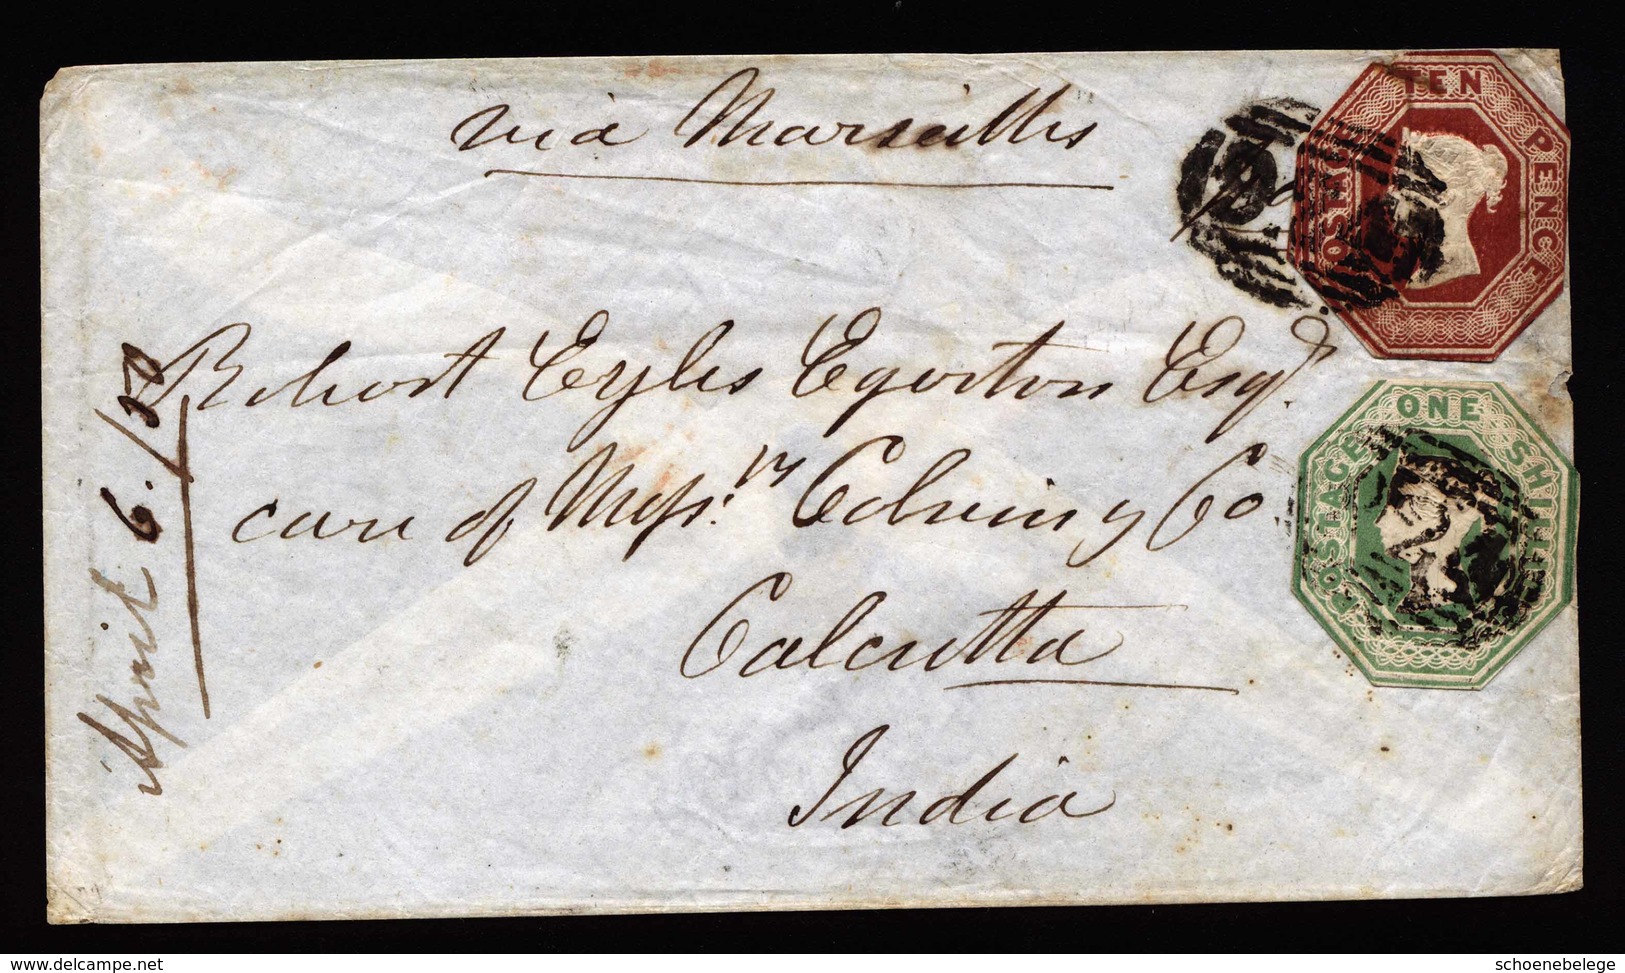 via Marseilles
TEN PENCE
POSTAGE
Robert Eyles Egerton Esqr.
ONE SHILLING
POSTAGE
care of Messrs. Colvin y Co
Calcutta
India
April 6./50
© www.delcampe.net
schoenebelege